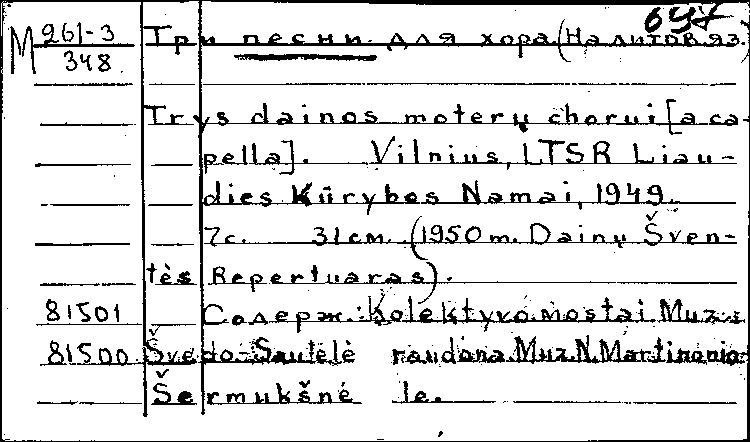 697
M 261-3
348
Три песни для хора (На литов яз.)
Trys dainos moterų chorui [a ca-
pella]. Vilnius, LTSR Liau-
dies Kūrybos Namai, 1949.
7с. 31см. (1950 m. Dainų Šven-
tės Repertuaras).
81501 Содерж.: Kolektyvo mostai Muz.:
81500 Švedo. Saulėlė raudona Muz N. Martinonio
Šermukšnė le.